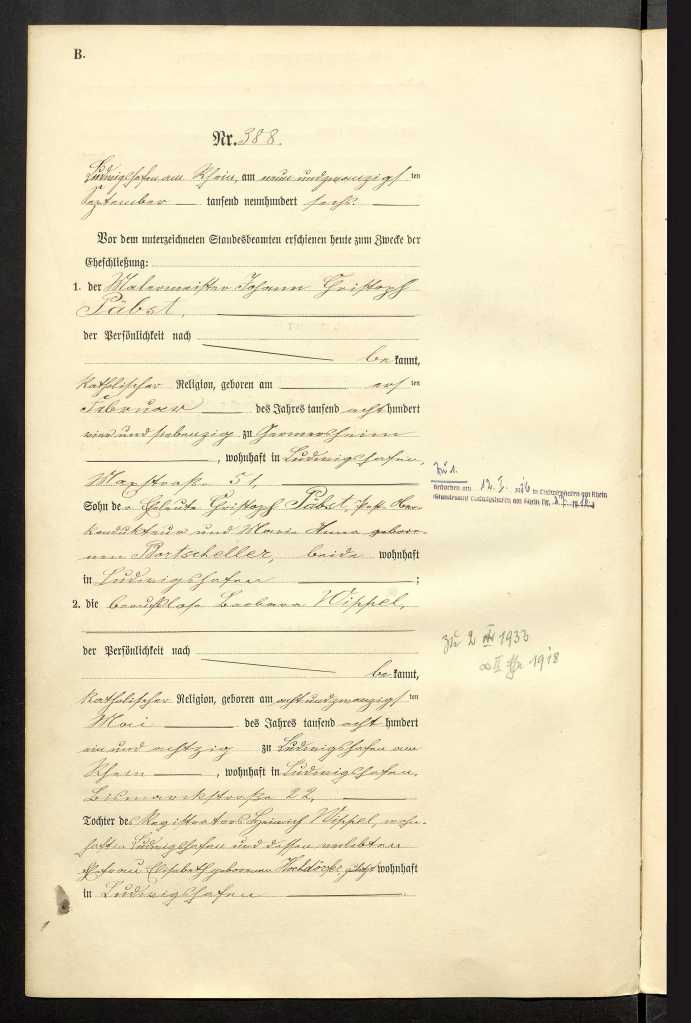 B.
Nr. 388.
Ludwigshafen am Rhein, am neunundzwanzigsten
September tausend neunhundert sechs.
Vor dem unterzeichneten Standesbeamten erschienen heute zum Zwecke der
Eheschließung:
1. der Malermeister Johann Christoph
Päbst,
der Persönlichkeit nach
bekannt,
katholischer Religion, geboren am ersten
Februar des Jahres tausend acht hundert
vierundsiebenzig zu Germersheim
, wohnhaft in Ludwigshafen,
Maxstraße 51,
Sohn der Eheleute Christoph Päbst,
kondukteur und Maria Anna gebore-
nen Bortscheller, beide wohnhaft
in Ludwigshafen ;
2. die berufslose Barbara Wippel,
der Persönlichkeit nach
bekannt,
katholischer Religion, geboren am achtundzwanzigsten
Mai des Jahres tausend acht hundert
ein und achtzig zu Ludwigshafen am
Rhein , wohnhaft in Ludwigshafen,
Bismarckstraße 22,
Tochter des Registrators Heinrich Wippel, wohn-
haft in Ludwigshafen und dessen verlebten
Ehefrau Elisabeth geborenen zuletzt wohnhaft
in Ludwigshafen .
Zu 1.
Gestorben am 12. in Ludwigshafen am Rhein
(Standesamt Ludwigshafen am Rhein Nr.
zu 2 1933
∞ II 1918